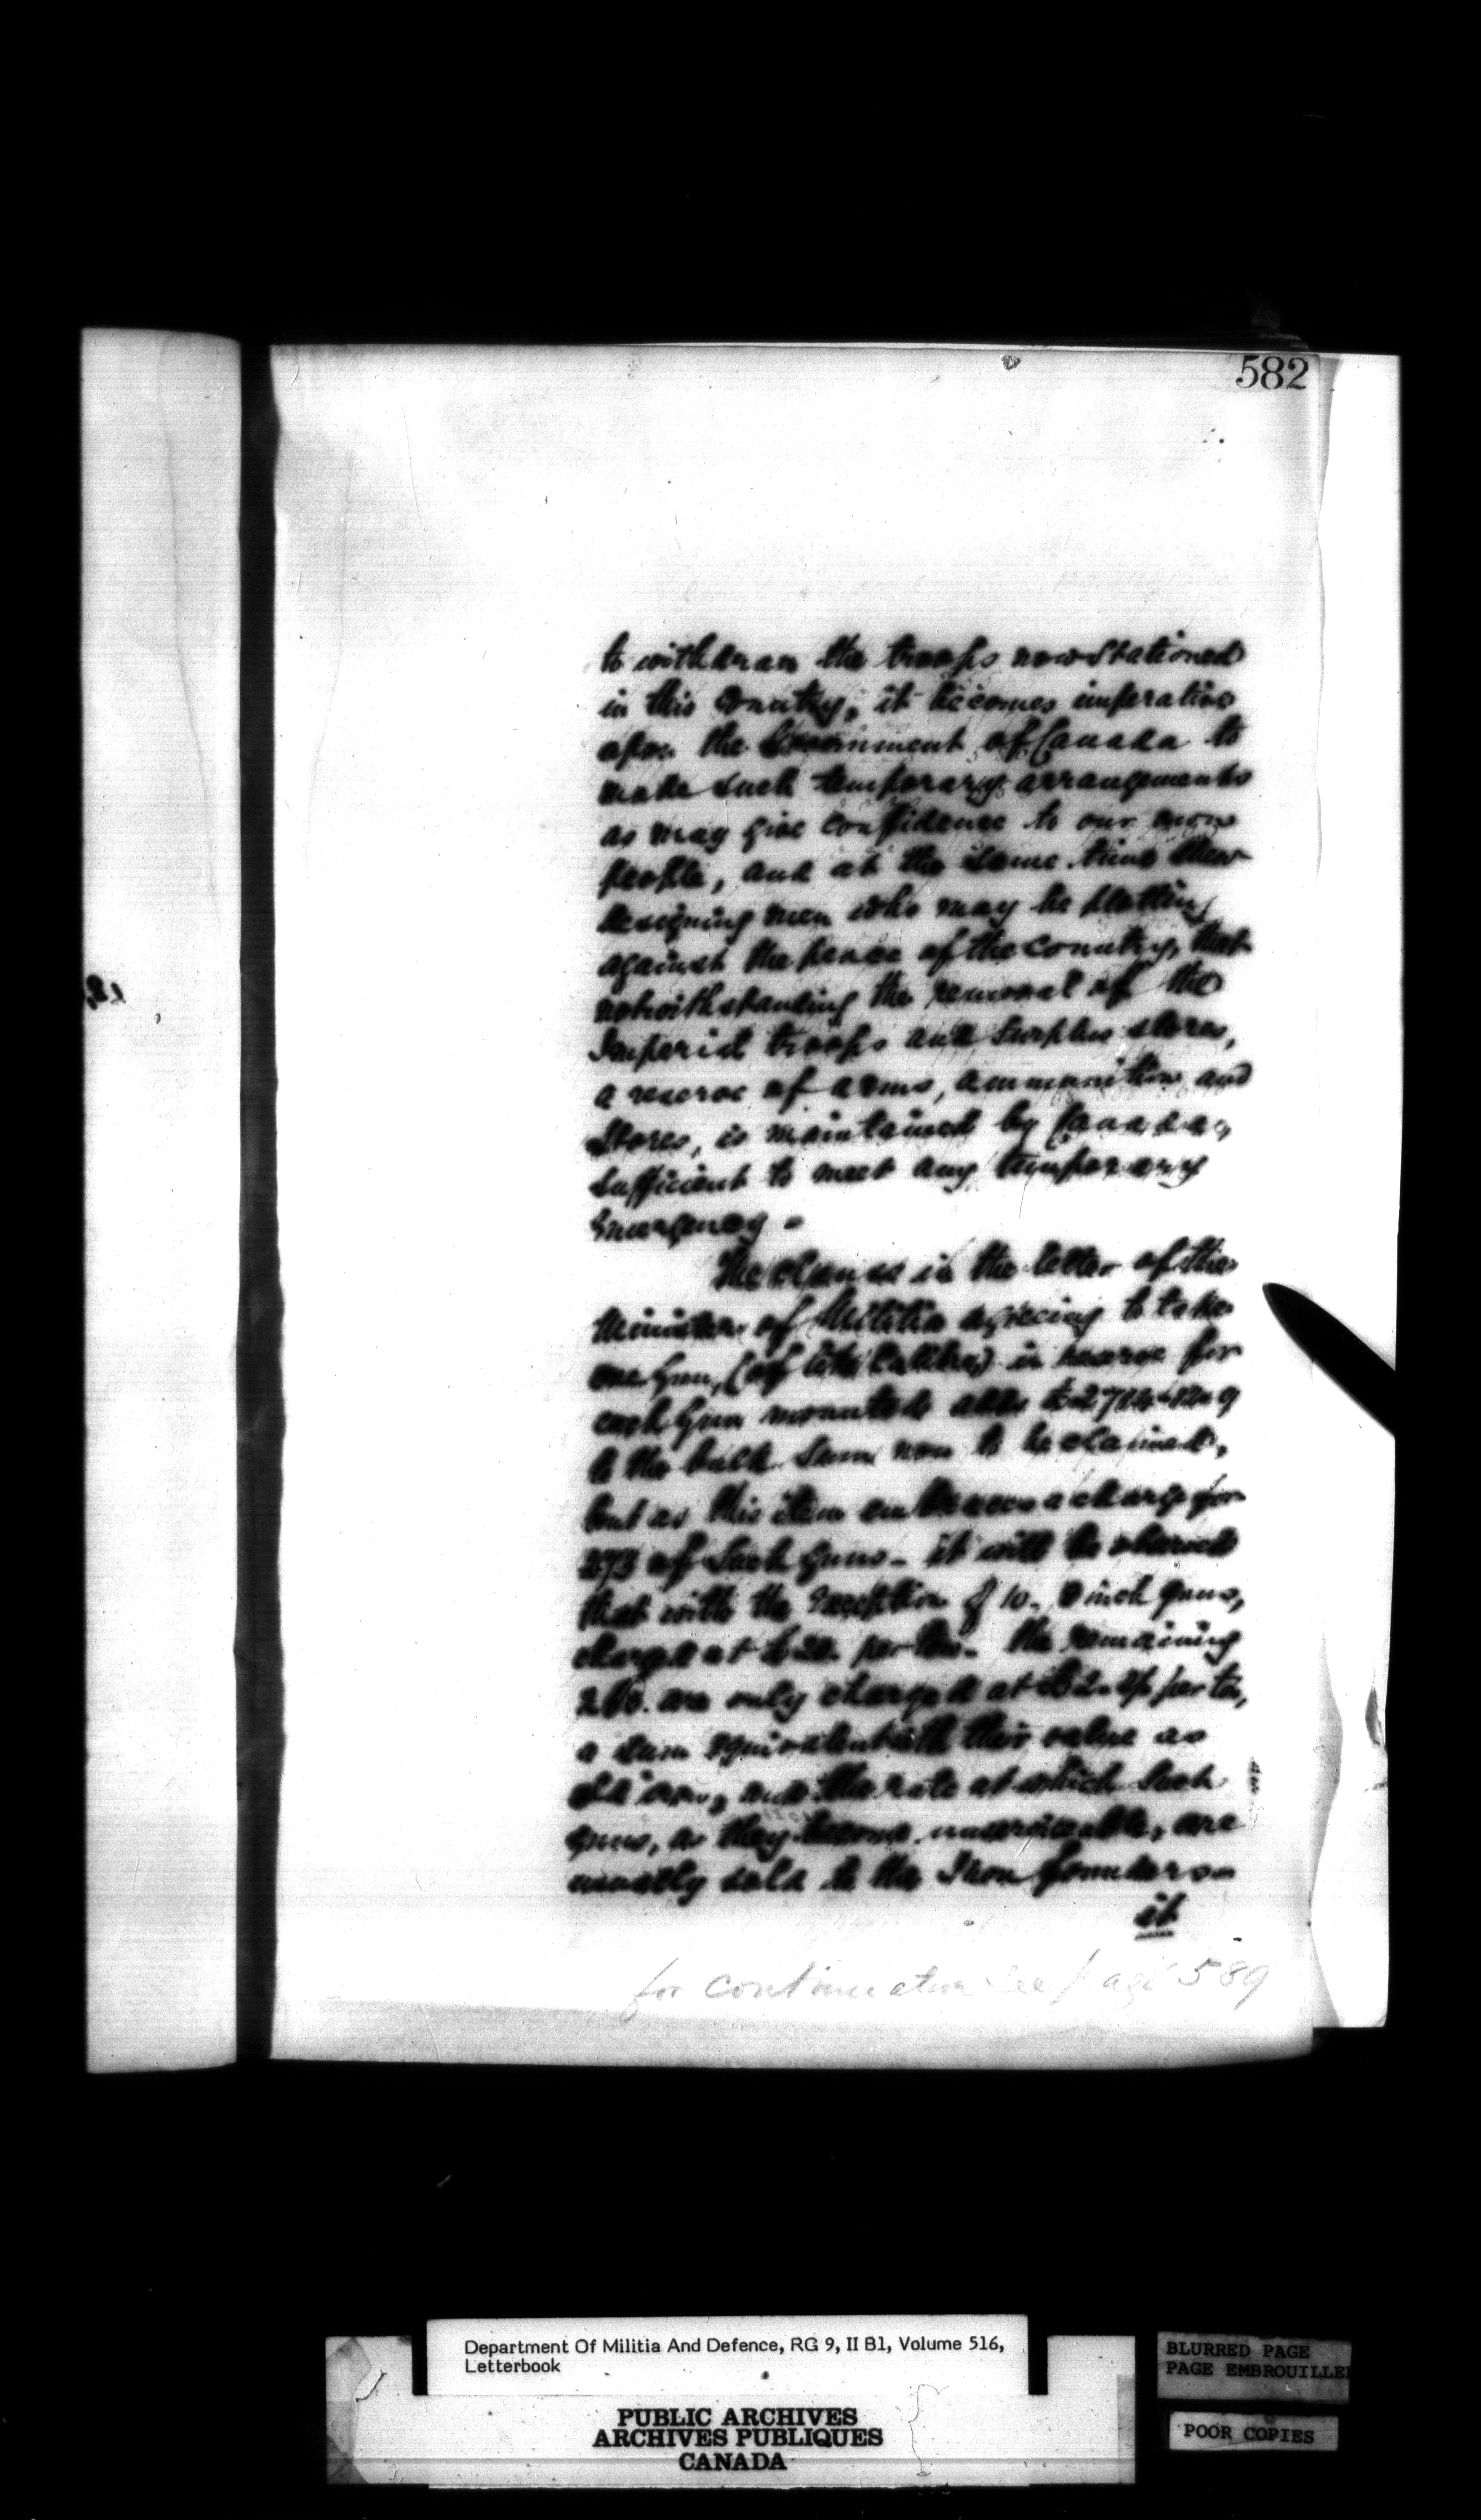 582
to withdraw the troops now stationed
in this Country, it becomes imperative
upon the Government of Canada to
make such temporary arrangements
as may give confidence to our own
people, and at the same time shew
designing men who may be plotting
against the peace of the country, that
notwithstanding the removal of the
Imperial troops and surplus stores,
a reserve of arms, ammunition and
Stores, is maintained by Canada,
sufficient to meet any temporary
Emergency -
The clause in the letter of the
Minister of Militia agreeing to take
one Gun, (of like Calibre) in reserve for
each Gun mounted adds
to the bulk sum now to be claimed,
but as this item embraces a charge for
273 of such Guns - it will be observed
that with the Exception of 10. 8 inch guns,
charged at per ton. the remaining
are only charged at per ton,
a sum equivalent with their value as
old iron, and the rate at which such
guns, as they become unserviceable, are
usually sold to the Iron founders -
it
for continuation see page 589
Department Of Militia And Defence, RG 9, II B1, Volume 516,
Letterbook
PUBLIC ARCHIVES
ARCHIVES PUBLIQUES
CANADA
BLURRED PAGE
PAGE EMBROUILLE
POOR COPIES